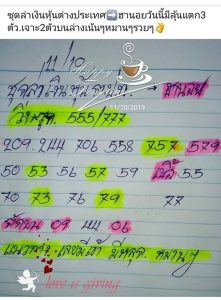 ชุดล่าเงินหุ้นต่างประเทศ➡️ฮานอยวันนี้มีลุ้นแตก3
ตัว.เจาะ2ตัวบนล่างเน้นๆหมานๆรวยๆ👌
11/10
Happy
11/10/2019
ชุดล่าเงิน ฮานอย
วิ่งรูด 555/777
209 244 706 558 757 579
50 53 56 57 59 55
70 73 76 79 77
09 44 06
หมานๆ
love is giving